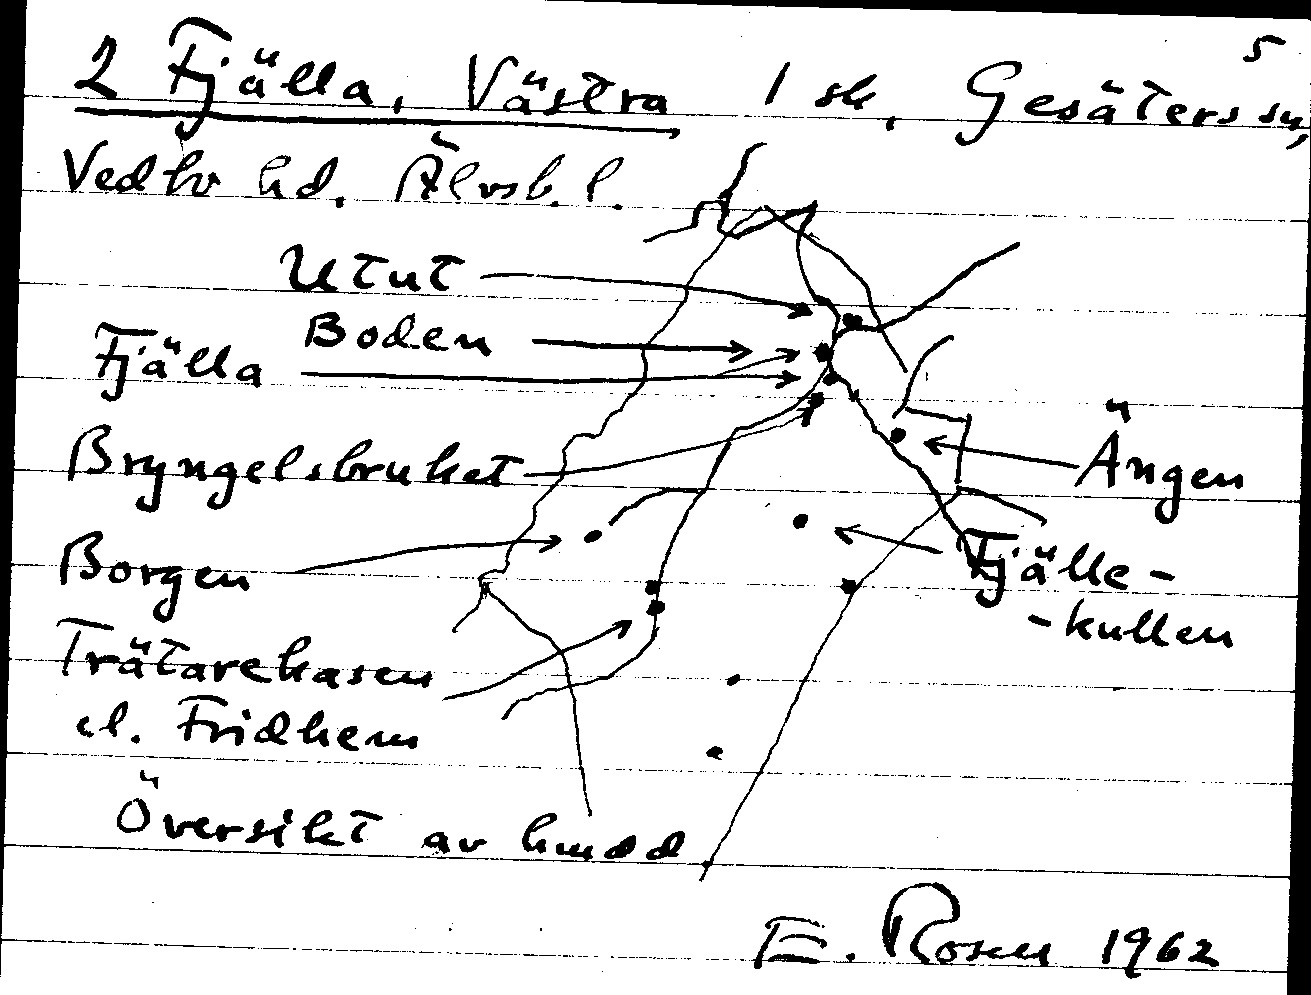 5
2 Fjälla, Västra 1 sk, Gesäters sn,
Vedbo hd. Älvsb. l.
Utut
Boden
Fjälla
Bryngelsbruket
Ängen
Borgen
Fjälle-
-kullen
Trätarekasen
el. Fridhem
Översikt av hmdd.
E. Rosen 1962